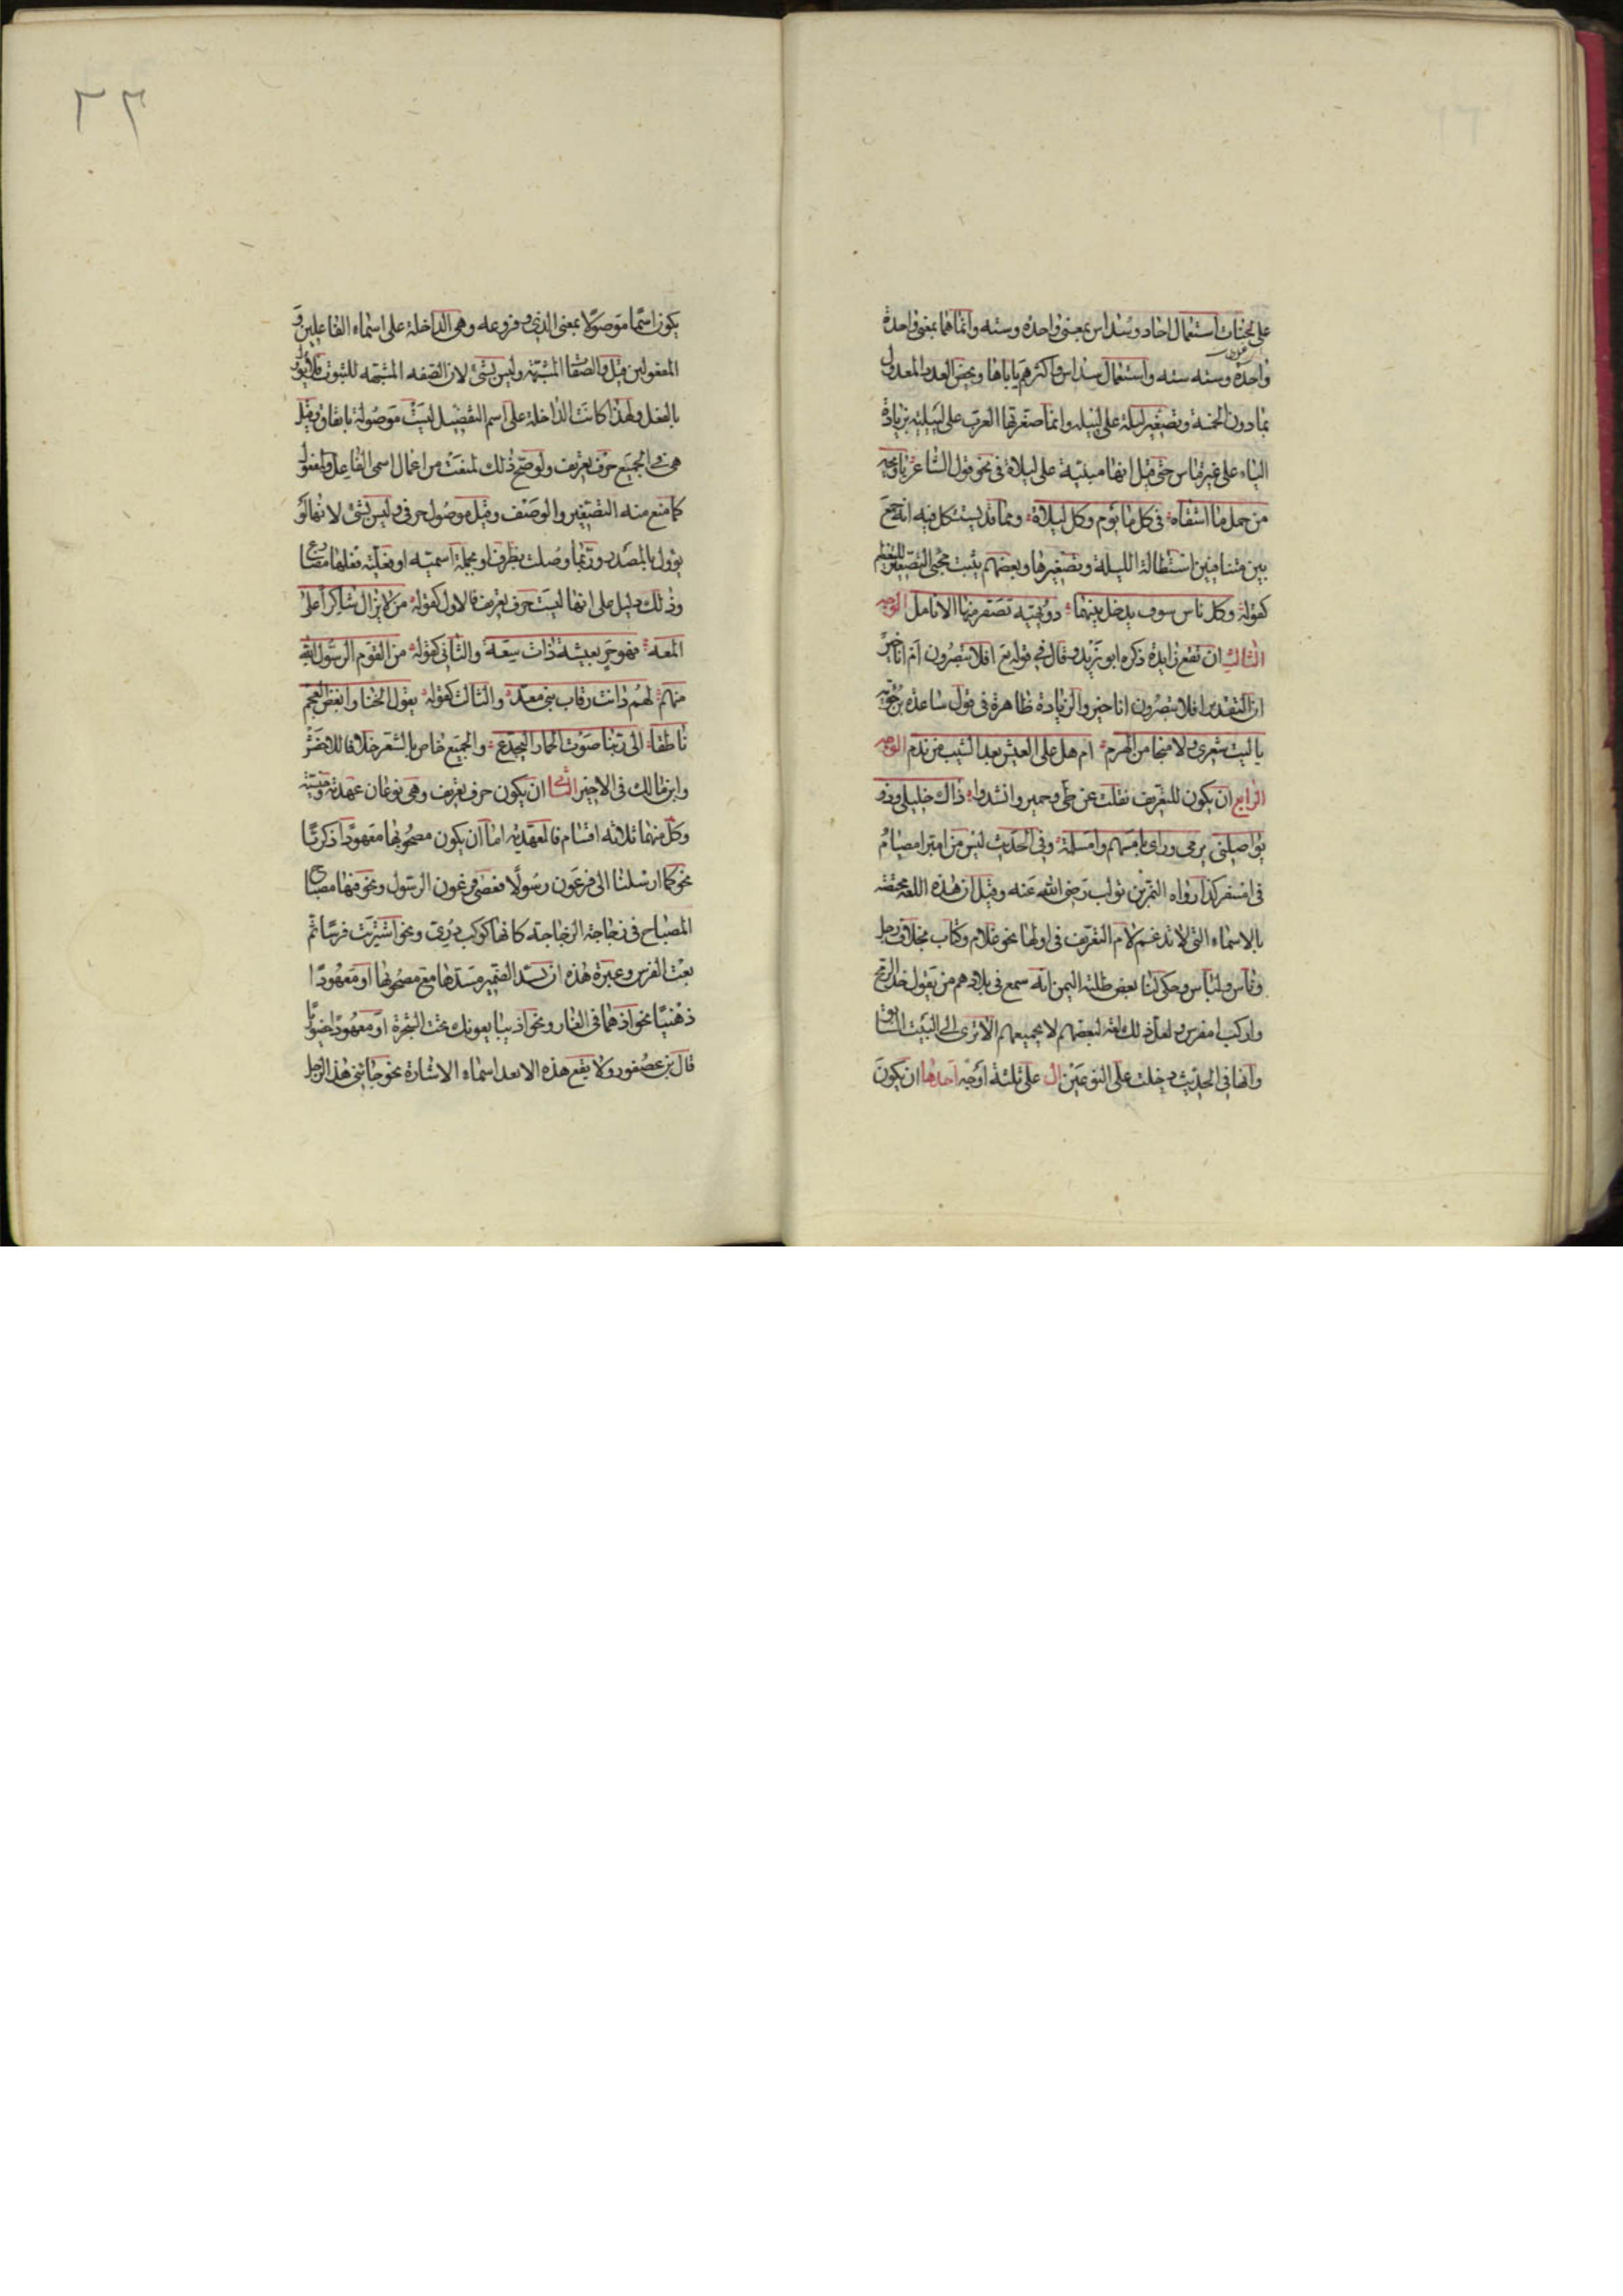 على لحنات استعمال احاد وسداس بمعنى واحدة وسته وانما هما بمعنى واحدة
واحدة وسته سته واستعمال سداس واكثرهم ياباها ويخص العدد المعدول
بما دون الخمسة وتصغير ليلة على لييله وانما صغرتها العرب على لييلية بزيادة
الياء على غير قياس حتى قيل انها مبنية على ليلاة في نحو قول الشاعر يا ويحه
من جمل ما اشقاه في كل ما يوم وكل ليلاة ومما قد يستشكل فيه انه جمع
بين متنافيين استطالة الليلة وتصغيرها وبعضهم يثبت مجئ التصغير للتعظيم
كقوله وكل ناس سوف يدخل بينهما دويهية تصفر منها الانامل الوجه
الثالث ان تقع زايدة ذكره ابو زيد وقال في قوله تع افلا تبصرون ام انا خير
ان التقدير افلا تبصرون انا خير والزيادة ظاهرة في قول ساعدة بن جوية
يا ليت شعري ولا منجا من الهرم ام هل على العيش بعد الشيب من ندم الوجه
الرابع ان يكون للتعريف نقلت عن طي وحمير وانشدوا ذاك خليلي وذو
يواصلني يرمي وراى بامسهم وامسلمة وفي الحديث ليس من امبر امصيام
في امسفر كذا رواه النمر بن تولب رضي الله عنه وقيل ان هذه اللغة مختصة
بالاسماء التي لا تدغم لام التعريف في اولها نحو غلام وكتاب بخلاف رجل
وناس ولباس وحكى لنا بعض طلبة اليمن انه سمع في بلادهم من يقول خذ الرمح
واركب امفرس ولعل ذلك لغة لبعضهم لا لجميعهم الا ترى الى البيت السابق
وانها في الحديث دخلت على النوعين ال على ثلثة اوجه احدها ان يكون
٢٢
يكون اسما موصولا بمعنى الذي وفروعه وهي الداخلة على اسماء الفاعلين و
المفعولين قيل والصفات المشبهة وليس بشئ لان الصفه المشبهه للثبوت فلا يؤول
بالفعل ولهذا كانت الداخلة على اسم التفضيل ليست موصولة باتفاق وقيل
هي في الجميع حرف تعريف ولو صح ذلك لمنعت من اعمال اسمي الفاعل والمفعول
كما منع منه التصغير والوصف وقيل موصول حرفي وليس بشئ لانها لا
يؤول بالمصدر وربما وصلت بظرف او بجملة اسمية او فعلية فعلها مضارع
وذلك دليل على انها ليست حرف تعريف فالاول كقوله من لا يزال شاكرا على
المعه فهو حر بعيشة ذات سعة والثاني كقوله من القوم الرسول الله
منهم لهم دانت رقاب بني معد والثالث كقوله يقول الخنا وابغض العجم
ناطقا الى ربنا صوت الحمار اليجدع والجميع خاص بالشعر خلافا للاخفش
وابن مالك في الاخير الثاني ان يكون حرف تعريف وهي نوعان عهدية وجنسية
وكل منهما ثلاثه اقسام فالعهدية اما ان يكون مصحوبها معهودا ذكريا
نحو كما ارسلنا الى فرعون رسولا فعصى فرعون الرسول ونحو فيها مصباح
المصباح في زجاجة الزجاجة كانها كوكب دري ونحو اشتريت فرسا ثم
بعت الفرس وعبرة هذه ان يسد الضمير مسدها مع مصحوبها او معهودا
ذهنيا نحو اذ هما في الغار ونحو اذ يبايعونك تحت الشجرة او معهودا حضوريا
قال بن عصفور ولا يقع هذه الا بعد اسماء الاشارة نحو جائني هذا الرجل